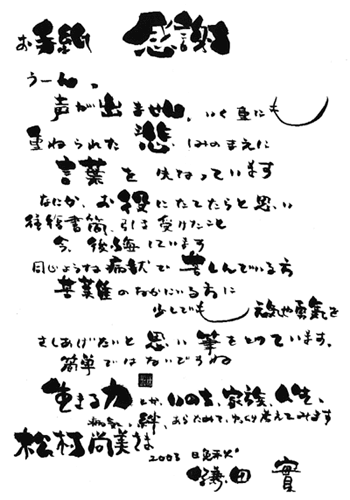 お手紙 感謝
うーん、
声が出ません。いく重にも
重ねられた悲しみのまえに
言葉を失なっています
なにか、お役にたてたらと思い
往復書簡、引き受けたこと
今、後悔しています
同じような病状で苦しんでいる方
苦難のなかにいる方に
少しでも 元気や勇気を
さしあげたいと思い筆をとっています。
簡単ではないでしょうね
生きる力とか、いのち、家族、人生、
絆、あらためて、ゆっくり考えてみます
松村尚美さま
2003 鎌田 實